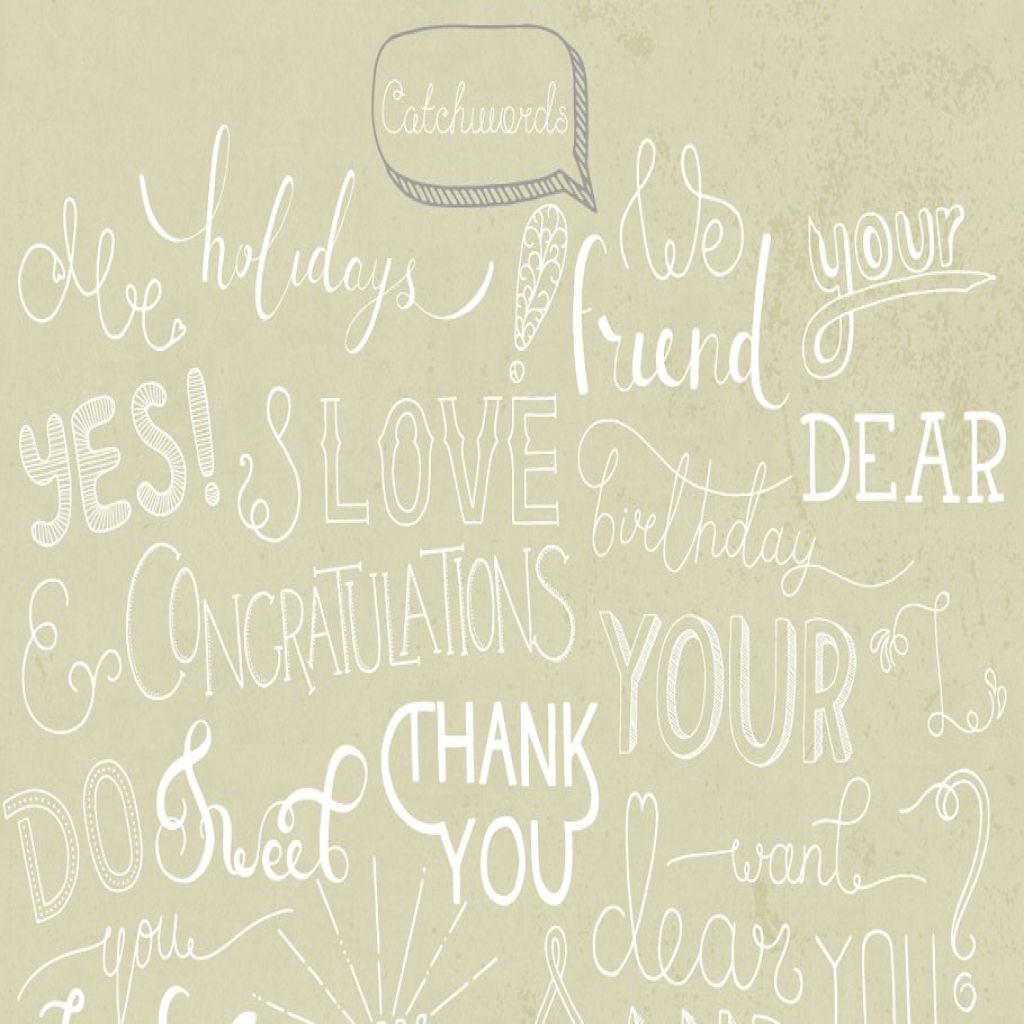 Catchwords
Me
holidays
!
We
your
friend
YES!
I LOVE
DEAR
birthday
&
CONGRATULATIONS
YOUR
I
DO
Sweet
THANK
YOU
want
?
dear
you
YOU